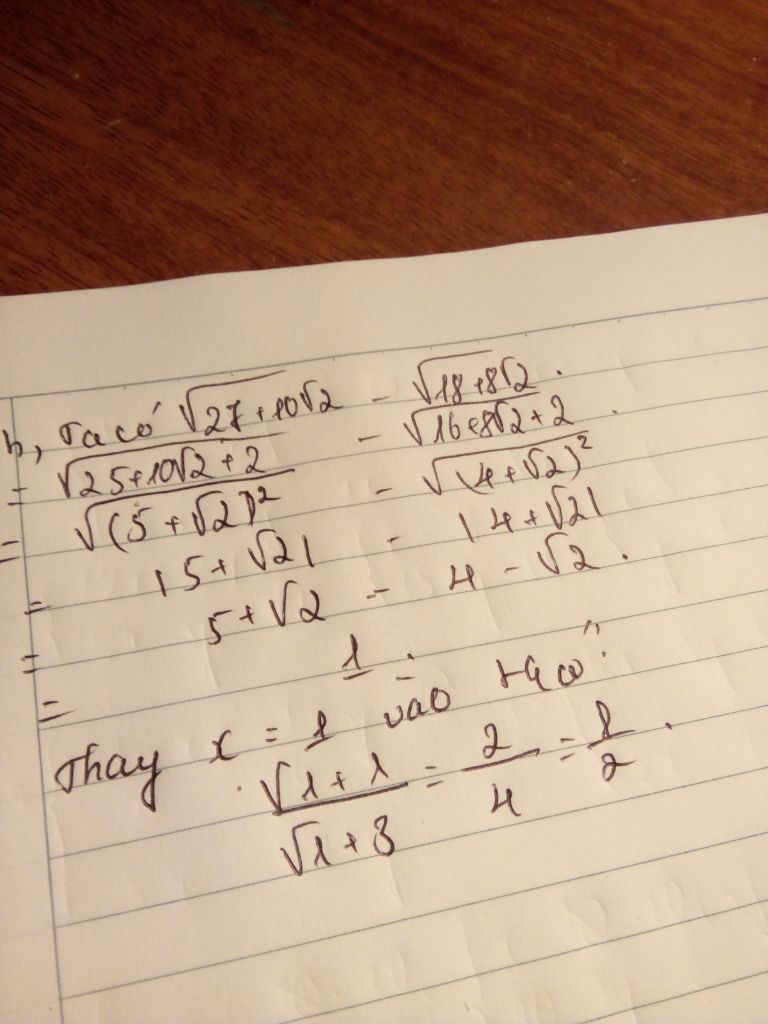 b, Ta có √27+10√2 - √18+8√2.
= √25+10√2+2 - √16+8√2+2.
= √(5+√2)² - √(4+√2)²
= |5+√2| - |4+√2|
= 5+√2 - 4-√2.
= 1.
Thay x = 1 vào ta có:
√1+1 / √1+3 = 2/4 = 1/2.